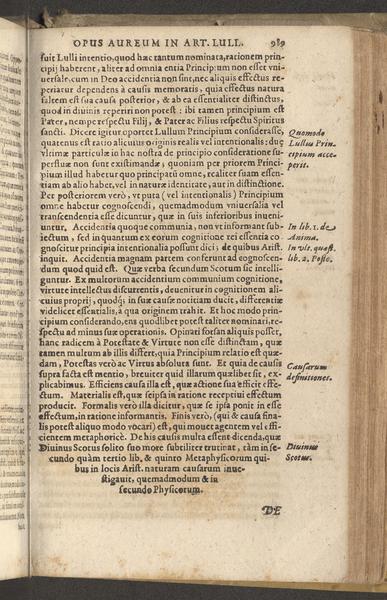 OPUS AUREUM IN ART. LULL. 989
fuit Lulli intentio, quod hæc tantum nominata, rationem prin-
cipij haberent, aliter ad omnia entia Principium non esset vni-
uersale: cum in Deo accidentia non sint, nec aliquis effectus re-
periatur dependens à causis memoratis, quia effectus natura
saltem est sua causa posterior, & ab ea essentialiter distinctus,
quod in diuinis reperiri non potest: ibi tamen principium est
Pater, nempe respectu Filij, & Pater ac Filius respectu Spiritus
sancti. Dicere igitur oportet Lullum Principium considerasse,
Quomodo
quatenus est ratio alicuius originis realis vel intentionalis: duę
Lullus Prin-
vltimæ particulæ in hac nostra de principio consideratione su-
cipium acce-
perfluæ non sunt existimandæ; quoniam per priorem Princi-
perit.
pium illud habetur quo principatū omne, realiter suam essen-
tiam ab alio habet, vel in naturæ identitate, aut in distinctione.
Per posteriorem verò, vt puta (vel intentionalis) Principium
omne habetur cognoscendi, quemadmodum vniuersalia vel
transcendentia esse dicuntur, quæ in suis inferioribus inueni-
untur. Accidentia quoque communia, non vt informant sub-
In lib. 1. de
iectum, sed in quantum ex eorum cognitione rei essentia co-
Anima.
gnoscitur principia intentionalia possunt dici; de quibus Arist.
In vlt. quæst.
inquit. Accidentia magnam partem conferunt ad cognoscen-
lib. 2. Poste.
dum quod quid est. Quæ verba secundum Scotum sic intelli-
guntur. Ex multorum accidentium communium cognitione,
virtute intellectus discurrentis, deuenitur in cognitionem ali-
cuius proprij, quodq́; in suæ causæ notitiam ducit, differentiæ
videlicet essentialis, à qua originem trahit. Et hoc modo prin-
cipium considerando, ens quodlibet potest taliter nominari, re-
spectu ad minus suæ operationis. Opinari forsan aliquis posset,
hanc radicem à Potestate & Virtute non esse distinctam, quæ
tamen multum ab illis differt, quia Principium relatio est quæ-
dam, Potestas verò ac Virtus absoluta sunt. Et quia de causis
Causarum
supra facta est mentio, breuiter quid illarum quælibet sit, ex-
definitiones.
plicabimus. Efficiens causa illa est, quæ actione sua efficit effe-
ctum. Materialis est, quæ seipsa in ratione receptiui effectum
producit. Formalis verò illa dicitur, quæ se ipsa ponit in esse
effectum, in ratione informantis. Finis verò, (qui & causa fina-
lis potest aliquo modo vocari) est, qui mouet agentem vel effi-
cientem metaphoricè. De his causis multa essent dicenda, quæ
Diuinus
Diuinus Scotus solito suo more subtiliter trutinat, tàm in se-
Scotus.
cundo quàm tertio lib, & quinto Metaphysicorum qui-
bus in locis Arist. naturam causarum inue-
stigauit, quemadmodum & in
secundo Physicorum.
DE